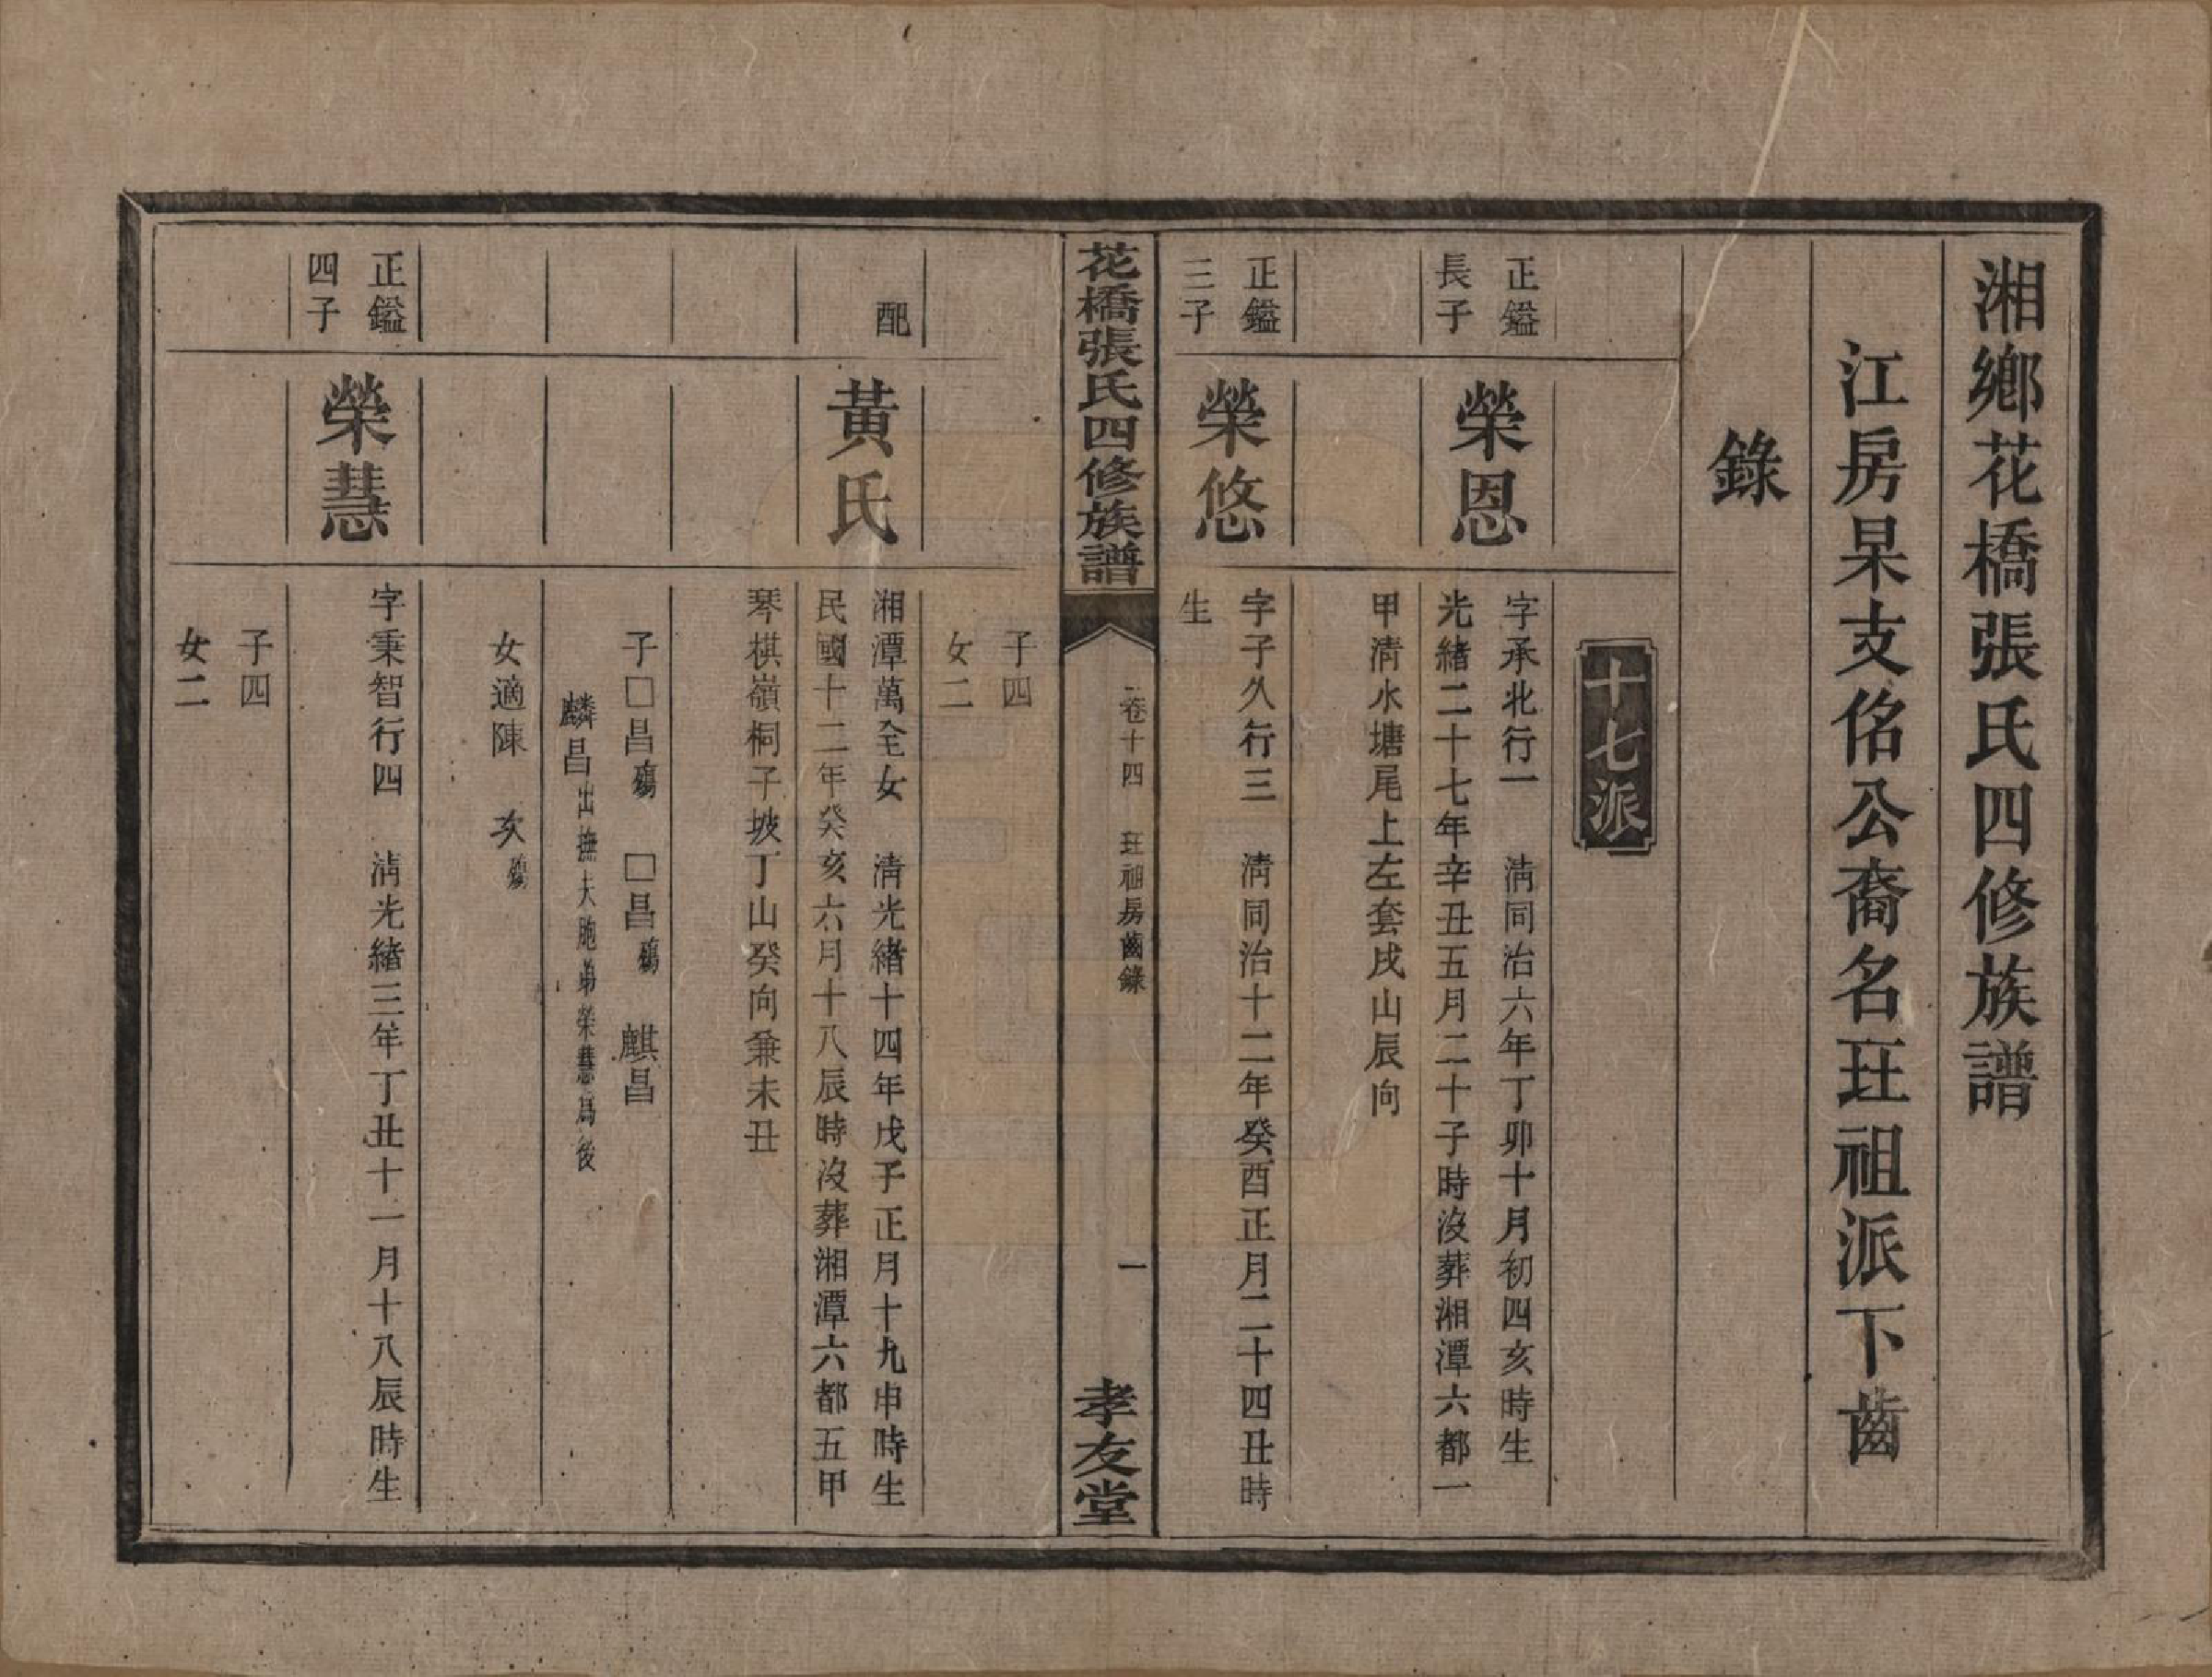 湘鄉花橋張氏四修族譜
江房杲支佲公裔名玨祖派下齒
錄
十七派
正鎰
長子
榮恩
字承北行一 清同治六年丁卯十月初四亥時生
光緒二十七年辛丑五月二十子時沒葬湘潭六都一
甲清水塘尾上左套戌山辰向
正鎰
三子
榮悠
字子久行三 清同治十二年癸酉正月二十四丑時
生
花橋張氏四修族譜
卷十四 祖房齒錄
一
孝友堂
子四
女二
配
黃氏
湘潭萬全女 清光緒十四年戊子正月十九申時生
民國十二年癸亥六月十八辰時沒葬湘潭六都五甲
琴棋嶺桐子坡丁山癸向兼未丑
子□昌殤 □昌殤 麒昌
麟昌出撫大胞弟榮慧爲後
女適陳 次殤
正鎰
四子
榮慧
字秉智行四 清光緒三年丁丑十一月十八辰時生
子四
女二